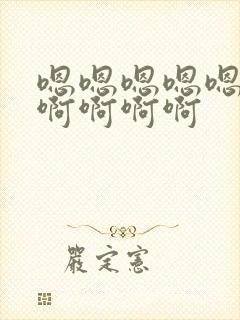 嗯嗯嗯嗯嗯
啊啊啊啊
嚴定憲